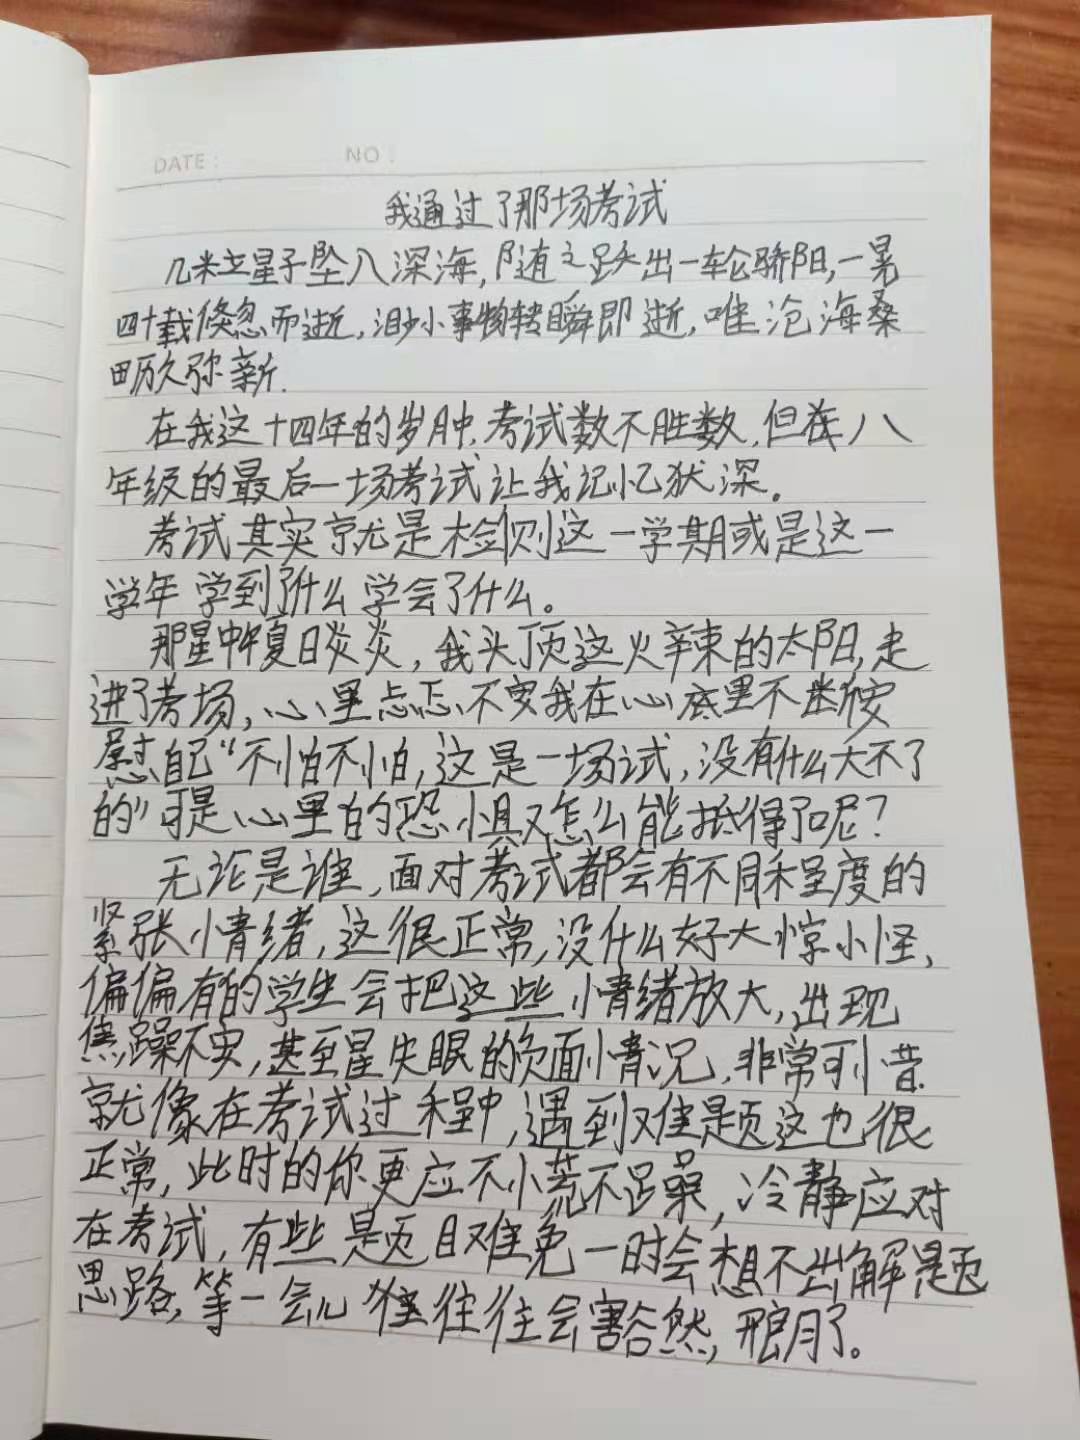 DATE: NO:
我通过了那场考试
几粒星子坠入深海,随之跃出一轮骄阳,一晃
四十载倏忽而逝,渺小事物转瞬即逝,唯沧海桑
田历久弥新.
在我这十四年的岁月中,考试数不胜数,但在八
年级的最后一场考试让我记忆犹深。
考试其实就是检测这一学期或是这一
学年学到了什么学会了什么。
那是中午夏日炎炎,我头顶这火辣的太阳,走
进了考场,心里忐忑不安我在心底里不断安
慰自己“不怕不怕,这是一场试,没有什么大不了
的”可是心里的恐惧又怎么能抵得了呢?
无论是谁,面对考试都会有不同程度的
紧张情绪,这很正常,没什么好大惊小怪,
偏偏有的学生会把这些情绪放大,出现
焦躁不安,甚至是失眠的负面情况,非常可惜
就像在考试过程中,遇到难题这也很
正常,此时的你更应不慌不躁,冷静应对
在考试,有些题目难免一时会想不出解题
思路,等一会儿往往会豁然,开朗了。